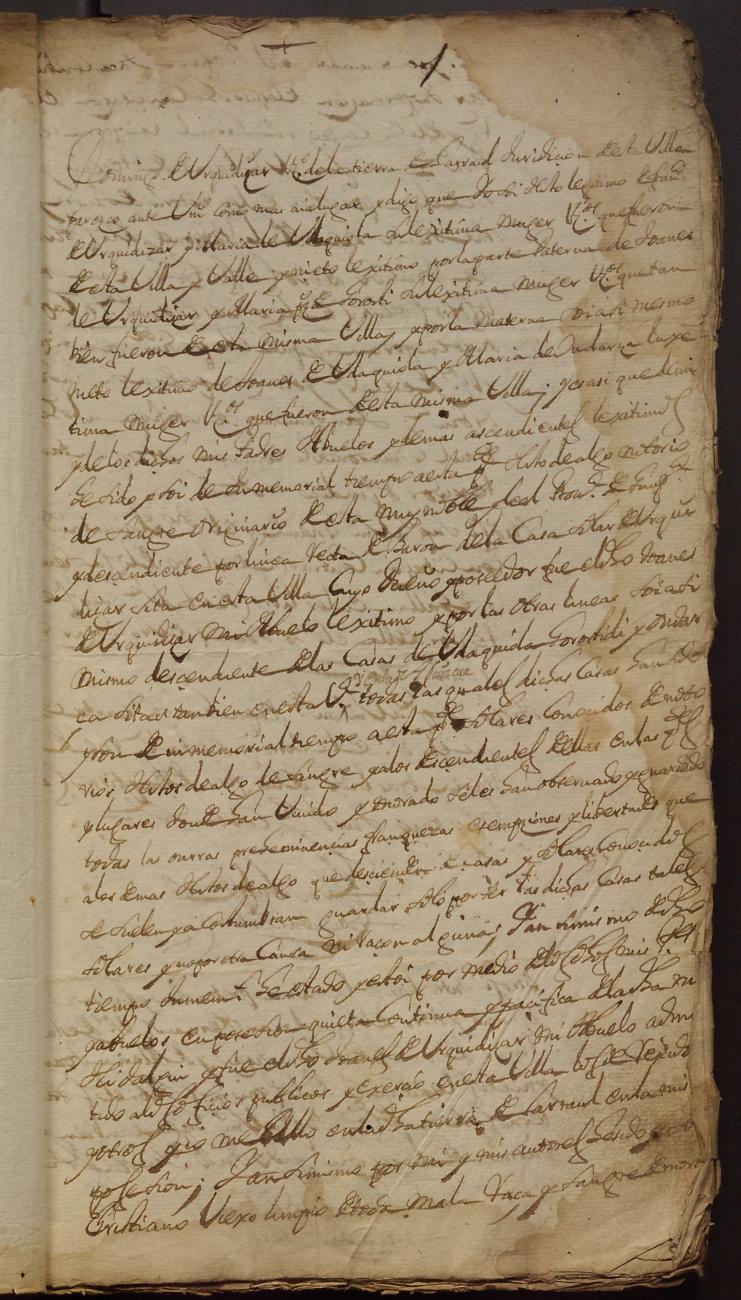 1
Domingo de Urquidiçar Vº de la tierra de Larraul Juridicion desta Villa
parezco ante Vm como mas aia lugar y digo que Yo soi Hijo lexitimo de Juanes
de Urquidizar y Maria de Ulaquiola su lexitima muger Vos que fueron
desta Villa y Valle y nieto lexitimo por la parte Paterna de Joanes
de Urquidiçar y Maria su lexitima muger Vos que tan
bien fueron de esta misma Villa, y por la Materna soi asi mesmo
nieto lexitimo de Joanes de Ulaquiola y Maria de su lexi
tima muger Vos que fueron desta misma Villa; y es asi que de mi
y de los dichos mis Padres Abuelos y demas ascendientes lexitimos
he sido y soi de Inmemorial tiempo a esta pte Hijodealgo notorio
de Sangre originario de esta muy noble y leal Prova de Guipa
y descendiente por linea recta de Baron de la Casa Solar de Urqui
diçar sita en esta Villa Cuyo Dueño y poseedor fue el dho Joanes
de Urquidiçar mi Abuelo lexitimo y por las otras lineas soi asi
mismo descendiente de las Casas de Ulaquiola y
sitas tambien en esta Va todas las quales dichas Casas han sido
y son de inmemorial tiempo a esta pte Solares Conocidos de noto
rios Hijosdealgo de Sangre y a los descendientes dellas en las ptes
y lugares donde han Vivido y morado se les han observado y guardado
todas las onrras preheminencias franquezas esempciones y libertades que
a los demas Hijosdealgo que descienden de Casas y Solares Conocidos
se suelen y acostumbran guardar solo por ser las dichas Casas tales
Solares y no por otra Causa ni raçon alguna; Y an simismo de dho
tiempo Inmeml he estado y estoi por medio de los dhos mis Pes
y abuelos en posesion quieta Continua y pacifica de la dha mi
Hidalguia y fue el dho Joanes de Urquidiçar mi Abuelo admi
tido a los dhos oficios publicos y exercio en esta Villa
y otros y io me allo en la dha tierra de Larraul en la mis
posesion; Y an simismo por mi y mis autores he sido
Cristiano Viexo limpio de toda mala Raça y sangre de moro